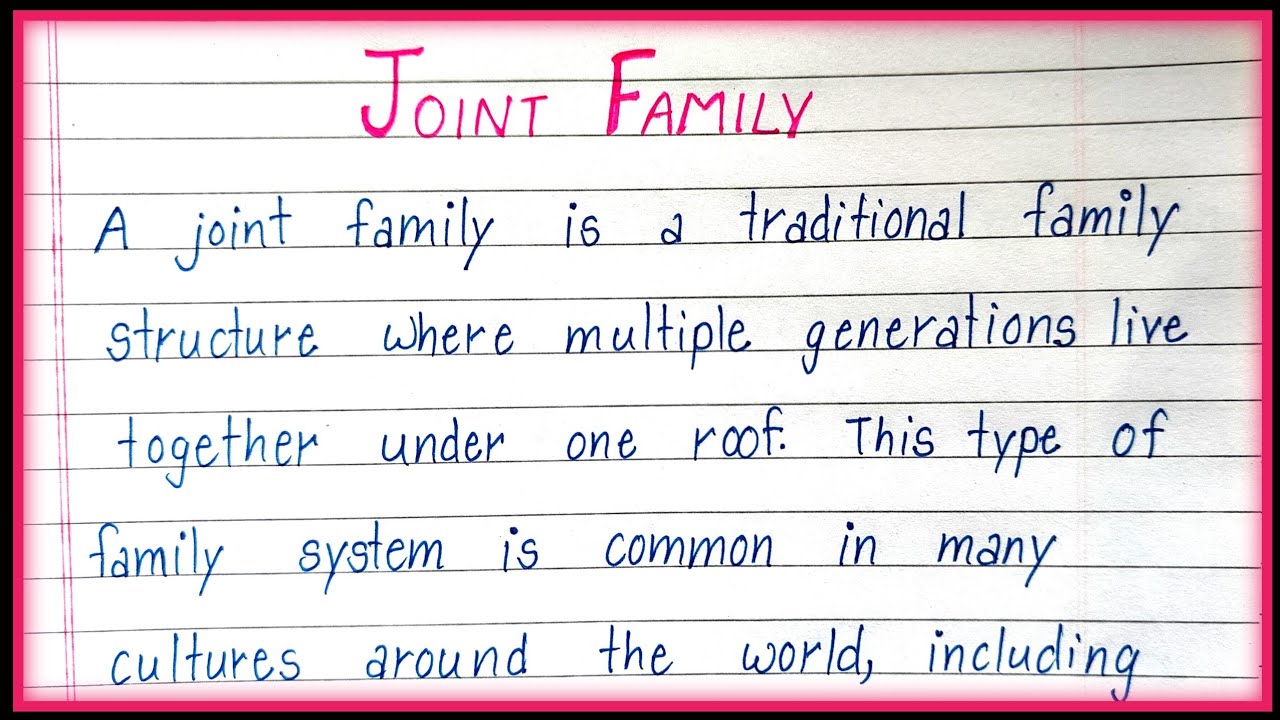 JOINT FAMILY
A joint family is a traditional family
structure where multiple generations live
together under one roof. This type of
family system is common in many
cultures around the world, including